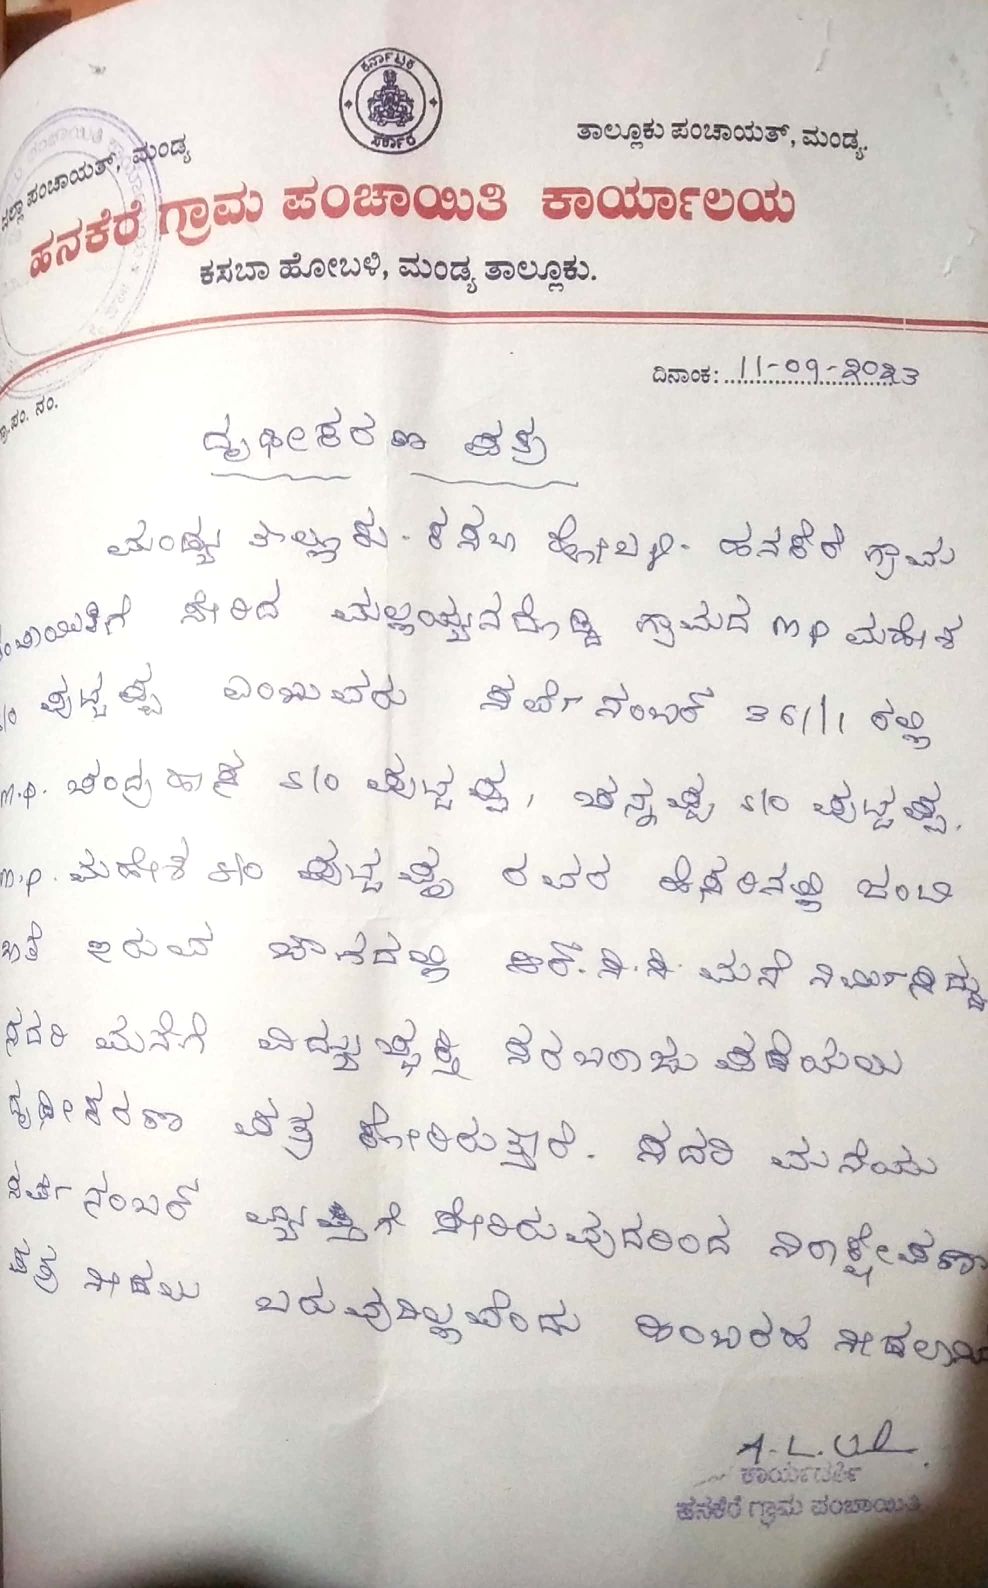 ಕರ್ನಾಟಕ
ಸರ್ಕಾರ
ಜಿಲ್ಲಾ ಪಂಚಾಯತ್, ಮಂಡ್ಯ
ತಾಲ್ಲೂಕು ಪಂಚಾಯತ್, ಮಂಡ್ಯ.
ಹನಕೆರೆ ಗ್ರಾಮ ಪಂಚಾಯಿತಿ ಕಾರ್ಯಾಲಯ
ಕಸಬಾ ಹೋಬಳಿ, ಮಂಡ್ಯ ತಾಲ್ಲೂಕು.
ದಿನಾಂಕ: 11-09-2023
ಗ್ರಾ.ಪಂ. ನಂ.
ದೃಢೀಕರಣ ಪತ್ರ
ಮಂಡ್ಯ ತಾಲ್ಲೂಕು. ಕಸಬಾ ಹೋಬಳಿ. ಹನಕೆರೆ ಗ್ರಾಮ
ಪಂಚಾಯಿತಿಗೆ ಸೇರಿದ ಮಲ್ಲಯ್ಯನದೊಡ್ಡಿ ಗ್ರಾಮದ m p ಮಹೇಶ
s/o ಪುಟ್ಟಪ್ಪ ಎಂಬುವರು ಸರ್ವೆ ನಂಬರ್ 361/1 ರಲ್ಲಿ
m.p. ಚಂದ್ರಹಾಸ s/o ಪುಟ್ಟಪ್ಪ, ಚನ್ನಪ್ಪ s/o ಪುಟ್ಟಪ್ಪ.
m.p. ಮಹೇಶ s/o ಪುಟ್ಟಪ್ಪ ರವರ ಹೆಸರಿನಲ್ಲಿ ಜಂಟಿ
ಖಾತೆ ಇರುವ ಜಾಗದಲ್ಲಿ ಆರ್.ಸಿ.ಸಿ. ಮನೆ ನಿರ್ಮಿಸಿದ್ದು
ಸದರಿ ಮನೆಗೆ ವಿದ್ಯುಚ್ಛಕ್ತಿ ಸರಬರಾಜು ಪಡೆಯಲು
ದೃಢೀಕರಣ ಪತ್ರ ಕೋರಿರುತ್ತಾರೆ. ಸದರಿ ಮನೆಯು
ಸರ್ವೆ ನಂಬರ್ ವ್ಯಾಪ್ತಿಗೆ ಸೇರಿರುವುದರಿಂದ ನಿರಾಕ್ಷೇಪಣಾ
ಪತ್ರ ನೀಡಲು ಬರುವುದಿಲ್ಲವೆಂದು ಹಿಂಬರಹ ನೀಡಲಾಗಿ
ಕಾರ್ಯದರ್ಶಿ
ಹನಕೆರೆ ಗ್ರಾಮ ಪಂಚಾಯಿತಿ